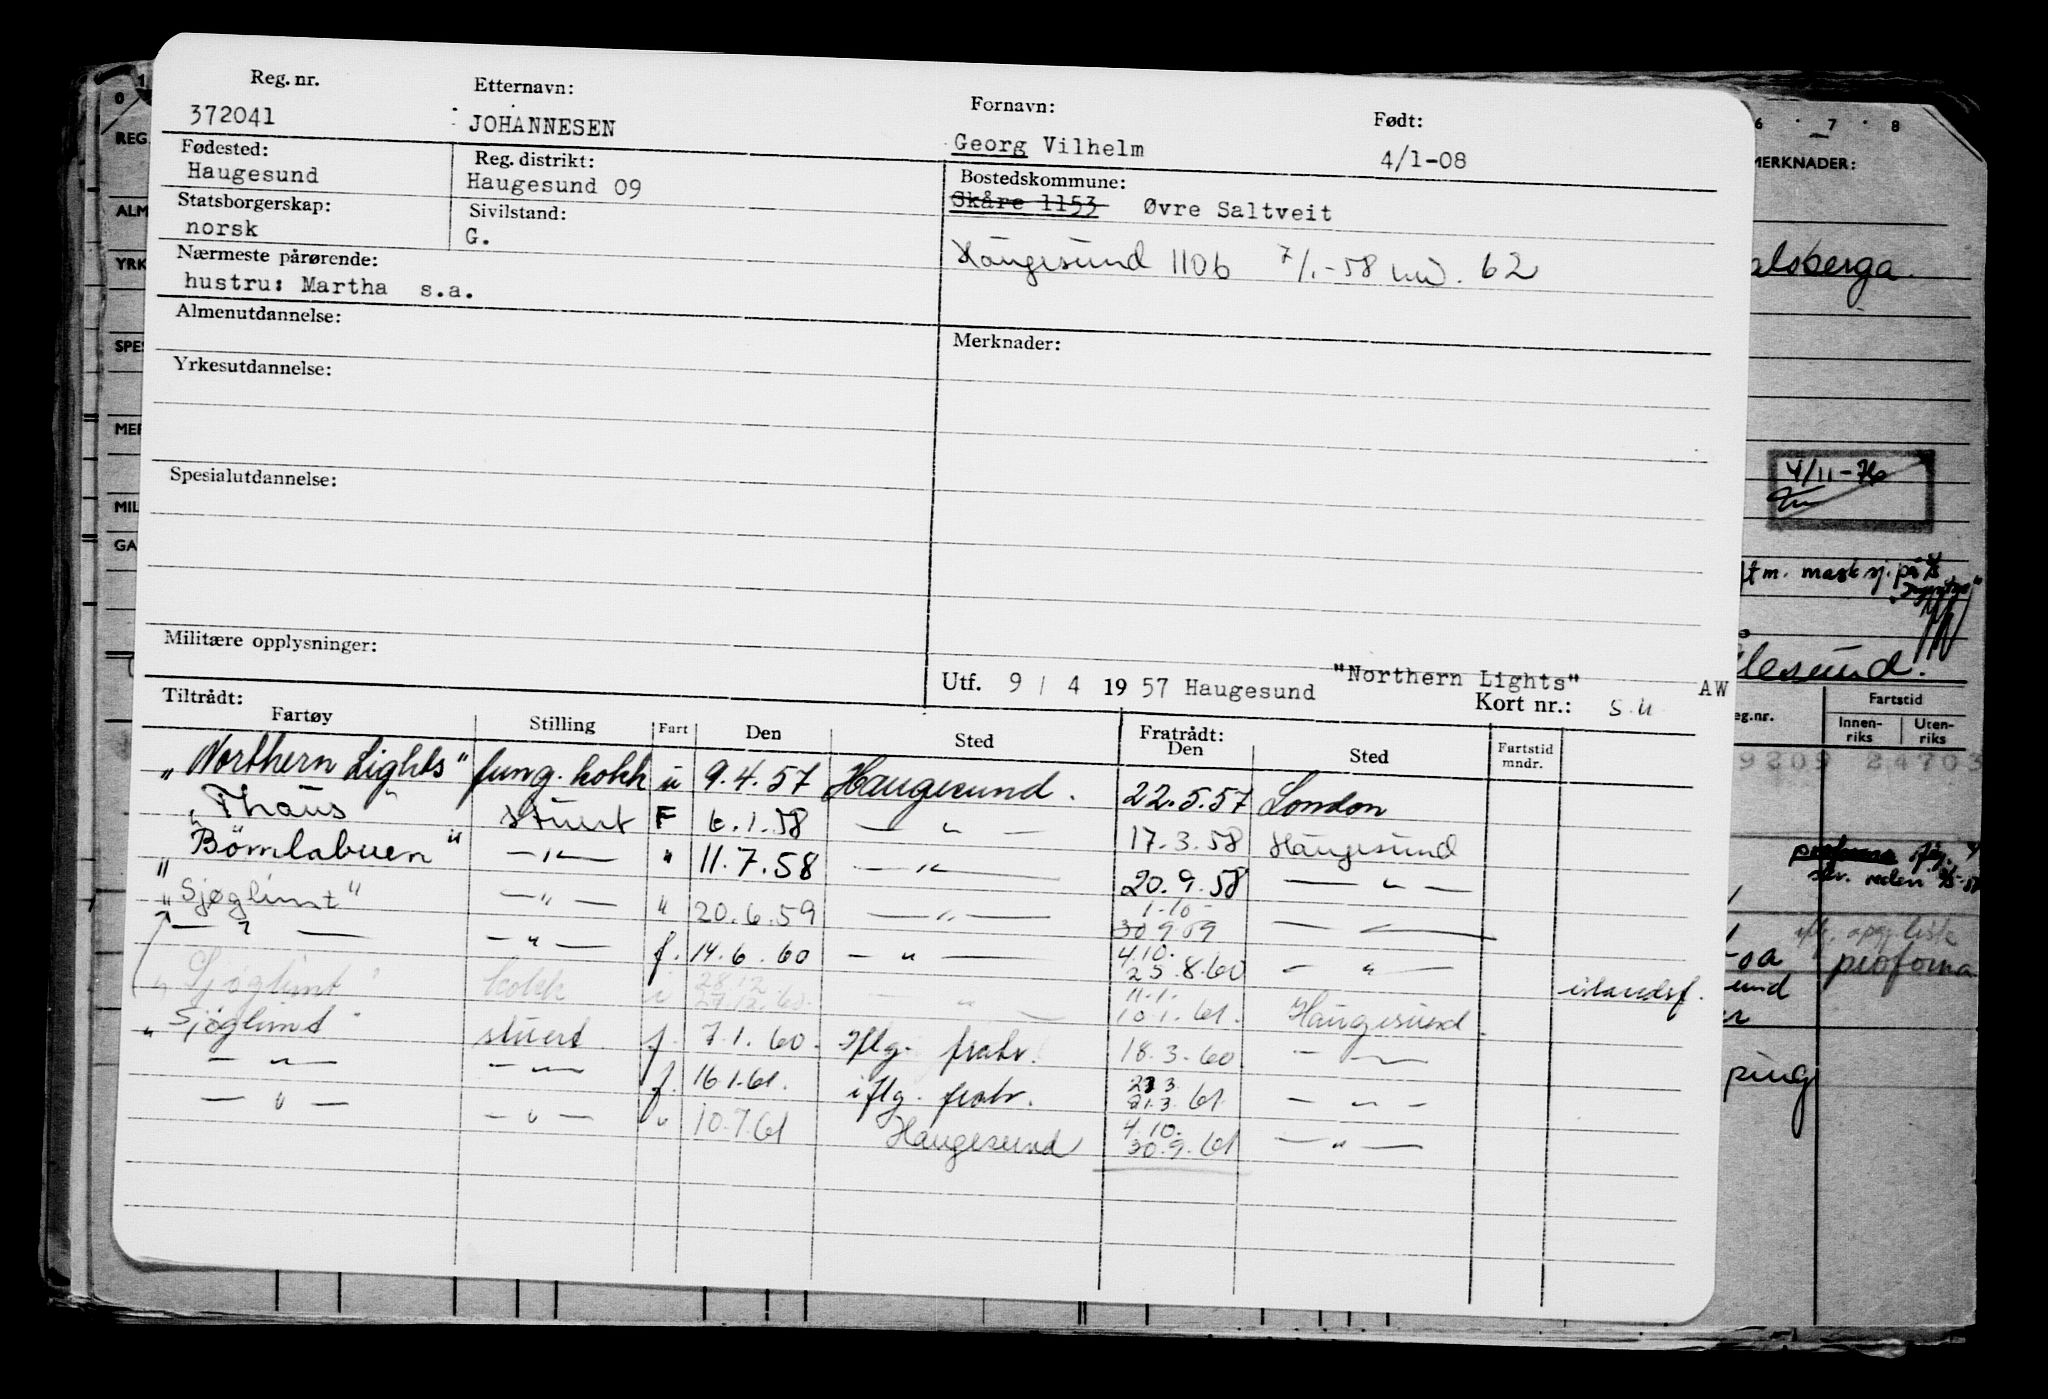 Reg. nr. Etternavn: Fornavn: Født:
372041 JOHANNESEN Georg Vilhelm 4/1-08
Fødested: Reg. distrikt: Bostedskommune:
Haugesund Haugesund 09 Skåre 1153 Øvre Saltveit
Statsborgerskap: Sivilstand:
norsk G. Haugesund 1106 7/1-58 62
Nærmeste pårørende:
hustru: Martha s.a.
Almenutdannelse: Merknader:
Yrkesutdannelse:
Spesialutdannelse:
Militære opplysninger:
Utf. 9 / 4 1957 Haugesund "Northern Lights" AW
Kort nr.: s.u.
Tiltrådt: Fratrådt:
Fartøy Stilling Fart Den Sted Den Sted Fartstid mndr.
"Northern Lights" fung. kokk u 9.4.57 Haugesund. 22.5.57 London
"Thaus" stuert F 6.1.58 — " — 17.3.58 Haugesund
"Bömlabuen" — " — " 11.7.58 — " — 20.9.58 — " —
"Sjøglimt" — " — " 20.6.59 — " — 1.10- 30.9.59 — " —
— " — — " — f. 14.6.60 — " — 4.10. 25.8.60 — " —
"Sjøglimt" kokk i 28.12. 29.12.60. " 11.1. 10.1.61. Haugesund. islandsf.
"Sjøglimt" stuert f. 7.1.60. iflg. fratr. 18.3.60 — " —
— " — — " — f. 16.1.61. iflg. fratr. 21.3.61. — " —
— " — — " — " 10.7.61 Haugesund 4.10. 30.9.61 — " —
0 1
REG.
ALM
YRK
SPES
MER
MIL
GA
6 7 8
MERKNADER:
alsberga.
4/11-76
ftm. mask sj. på
lesund.
eg.nr. Fartstid
Innen-riks Uten-riks
9209 24703
proforma
ifl. opg. liste
proforma
und
er
ping